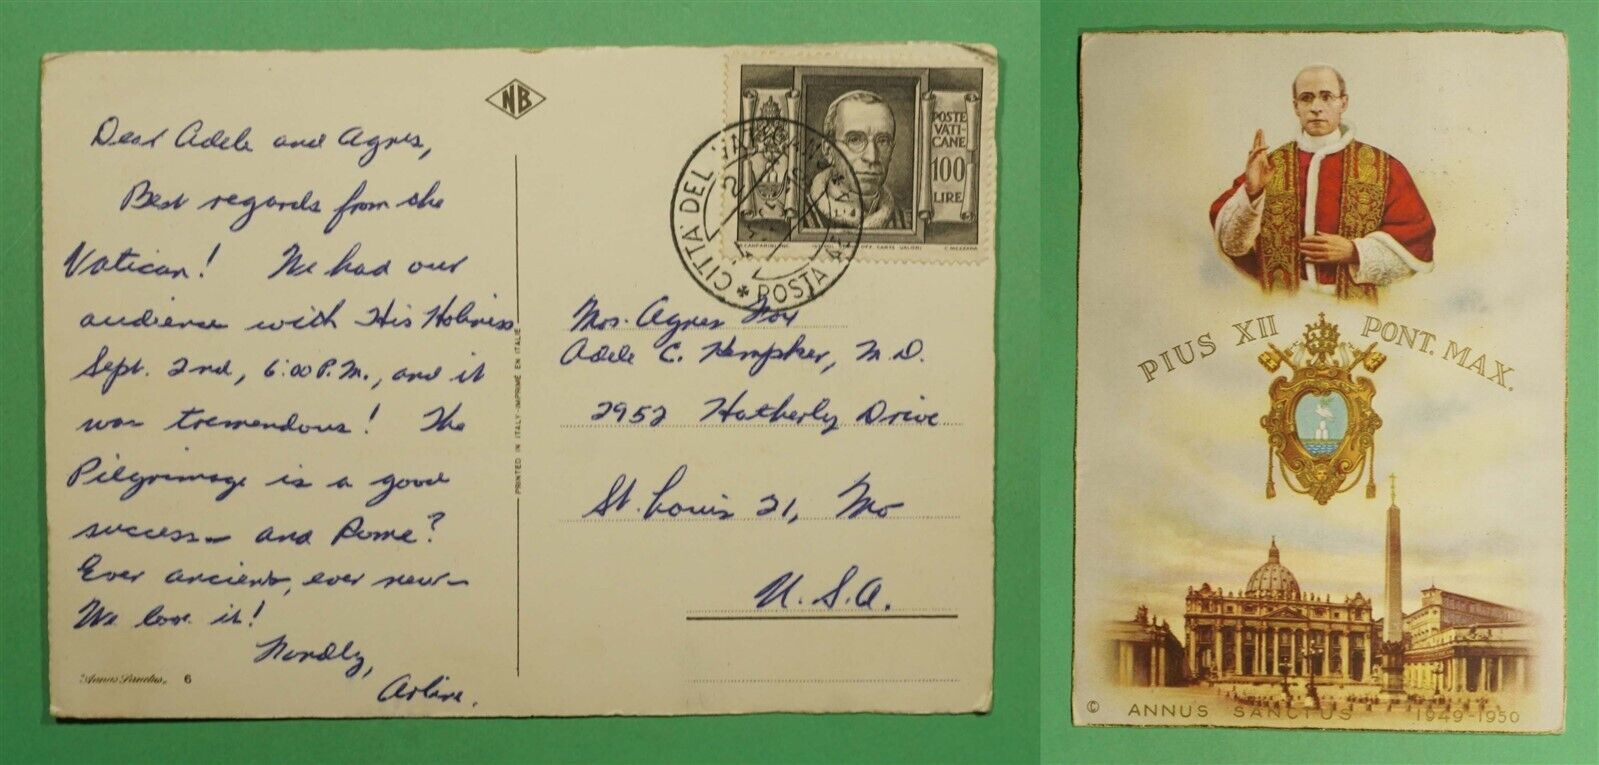 NB
Dear Adele and Agnes,
Best regards from the
Vatican! We had our
audience with His Holiness
Sept. 2nd, 6:00 P.M., and it
was tremendous! The
Pilgrimage is a good
success – and Rome?
Ever ancient, ever new –
We love it!
Arline.
"Annus Sanctus" 6
PRINTED IN ITALY-IMPRIMÉ EN ITALIE
POSTE
VATI-
CANE
100
LIRE
CITTÀ DEL
POSTA
Mrs. Agnes Fox
Adele C. Hempker, M.D.
2952 Hatherly Drive
St. Louis 21, Mo
U.S.A.
PIUS XII PONT. MAX.
© ANNUS SANCTUS 1949-1950